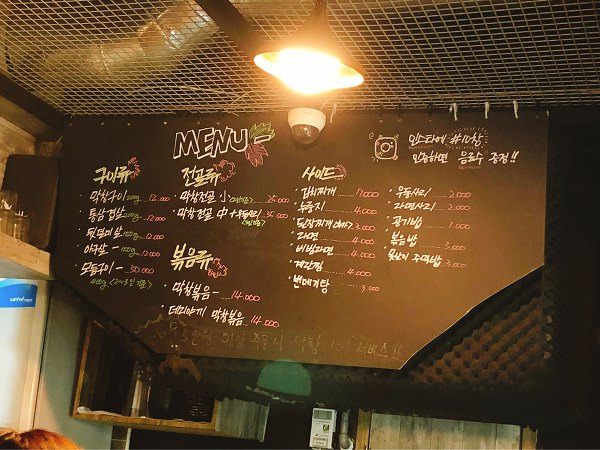 MENU
구이류
막창구이 200g 12.000
통삼겹살 200g 12.000
뒷덜미살 12.000
아구살 12.000
모듬구이 30.000
전골류
막창전골 小
막창전골 中 +우동사리 35.000
볶음류
막창볶음 14.000
데리야끼 막창볶음 14.000
사이드
김치찌개 7.000
누룽지 4.000
된장찌개 3.000
라면 4.000
비빔라면 4.000
계란찜 4.000
번데기탕 3.000
우동사리 2.000
라면사리 2.000
공기밥 1.000
볶음밥
주먹밥 3.000
인스타에 #막창
인증하면 음료수 증정!!
이상 주문시 막창 서비스!!